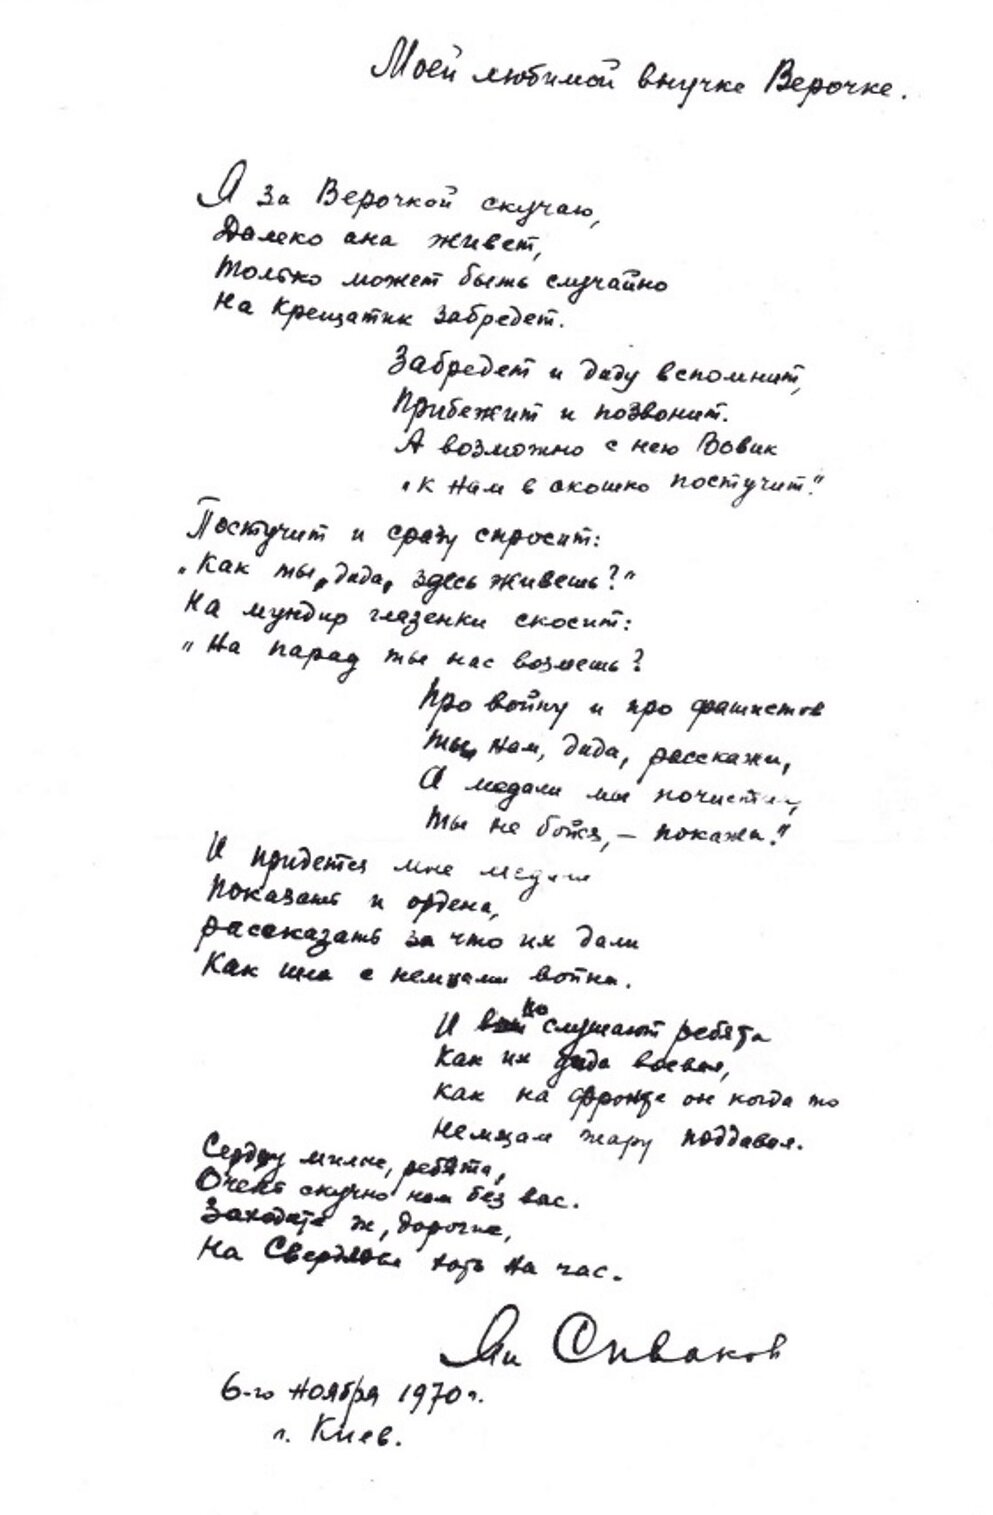 Моей любимой внучке Верочке.
Я за Верочкой скучаю,
Далеко она живет,
Только может быть случайно
На Крещатик забредет.
Забредет и диду вспомнит,
Прибежит и позвонит.
А возможно с нею Вовик
"К нам в окошко постучит."
Постучит и сразу спросит:
"Как ты, дида, здесь живешь?"
На мундир глазенки скосит:
"На парад ты нас возмешь?
Про войну и про фашистов
Ты нам, дида, расскажи,
А медали мы почистим,
Ты не бойся, – покажи."
И придется мне медали
Показать и ордена,
рассказать за что их дали
Как шла с немцами война.
И послушают ребята
Как их дида воевал,
Как на фронте он когда то
Немцам жару поддавал.
Сердцу милые, ребята,
Очень скучно нам без вас.
Заходите ж, дорогие,
На Свердлова хоть на час.
Ян Спваков
6-го ноября 1970 г.
г. Киев.